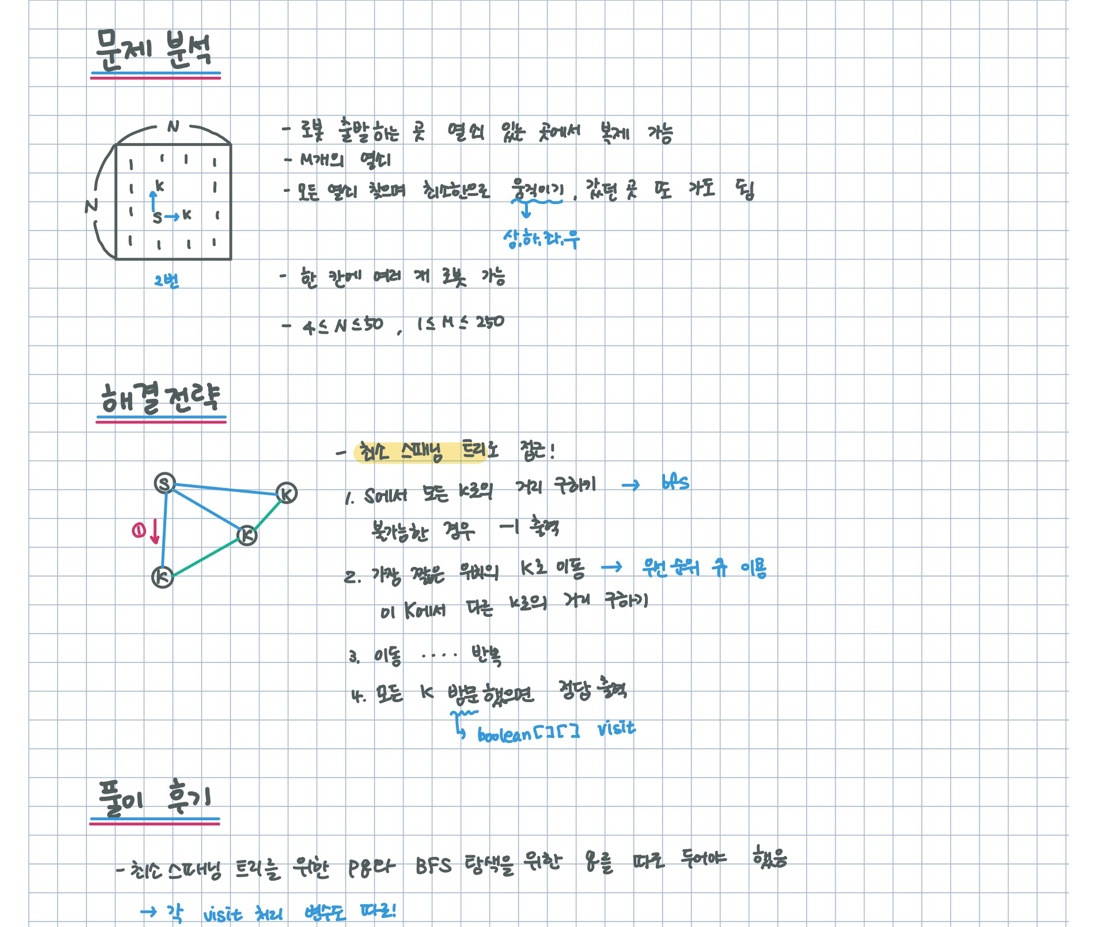 문제 분석
N
- 로봇 출발하는 곳 열쇠 있는 곳에서 복제 가능
- M개의 열쇠
- 모든 열쇠 찾으며 최소한으로 움직이기, 갔던 곳 또 가도 됨
상,하,좌,우
N
1 1 1 1
1 K 1
1 S K 1
1 1 1 1
2번
- 한 칸에 여러 개 로봇 가능
- 4≤N≤50, 1≤M≤250
해결전략
- 최소 스패닝 트리로 접근!
S
K
K
K
①
1. S에서 모든 K로의 거리 구하기 → bfs
불가능한 경우 -1 출력
2. 가장 짧은 위치의 K로 이동 → 우선순위 큐 이용
이 K에서 다른 K로의 거리 구하기
3. 이동 .... 반복
4. 모든 K 방문했으면 정답 출력
boolean[][] visit
풀이 후기
- 최소스패닝 트리를 위한 PQ와 BFS 탐색을 위한 Q를 따로 두어야 했음
→ 각 visit 처리 변수도 따로!